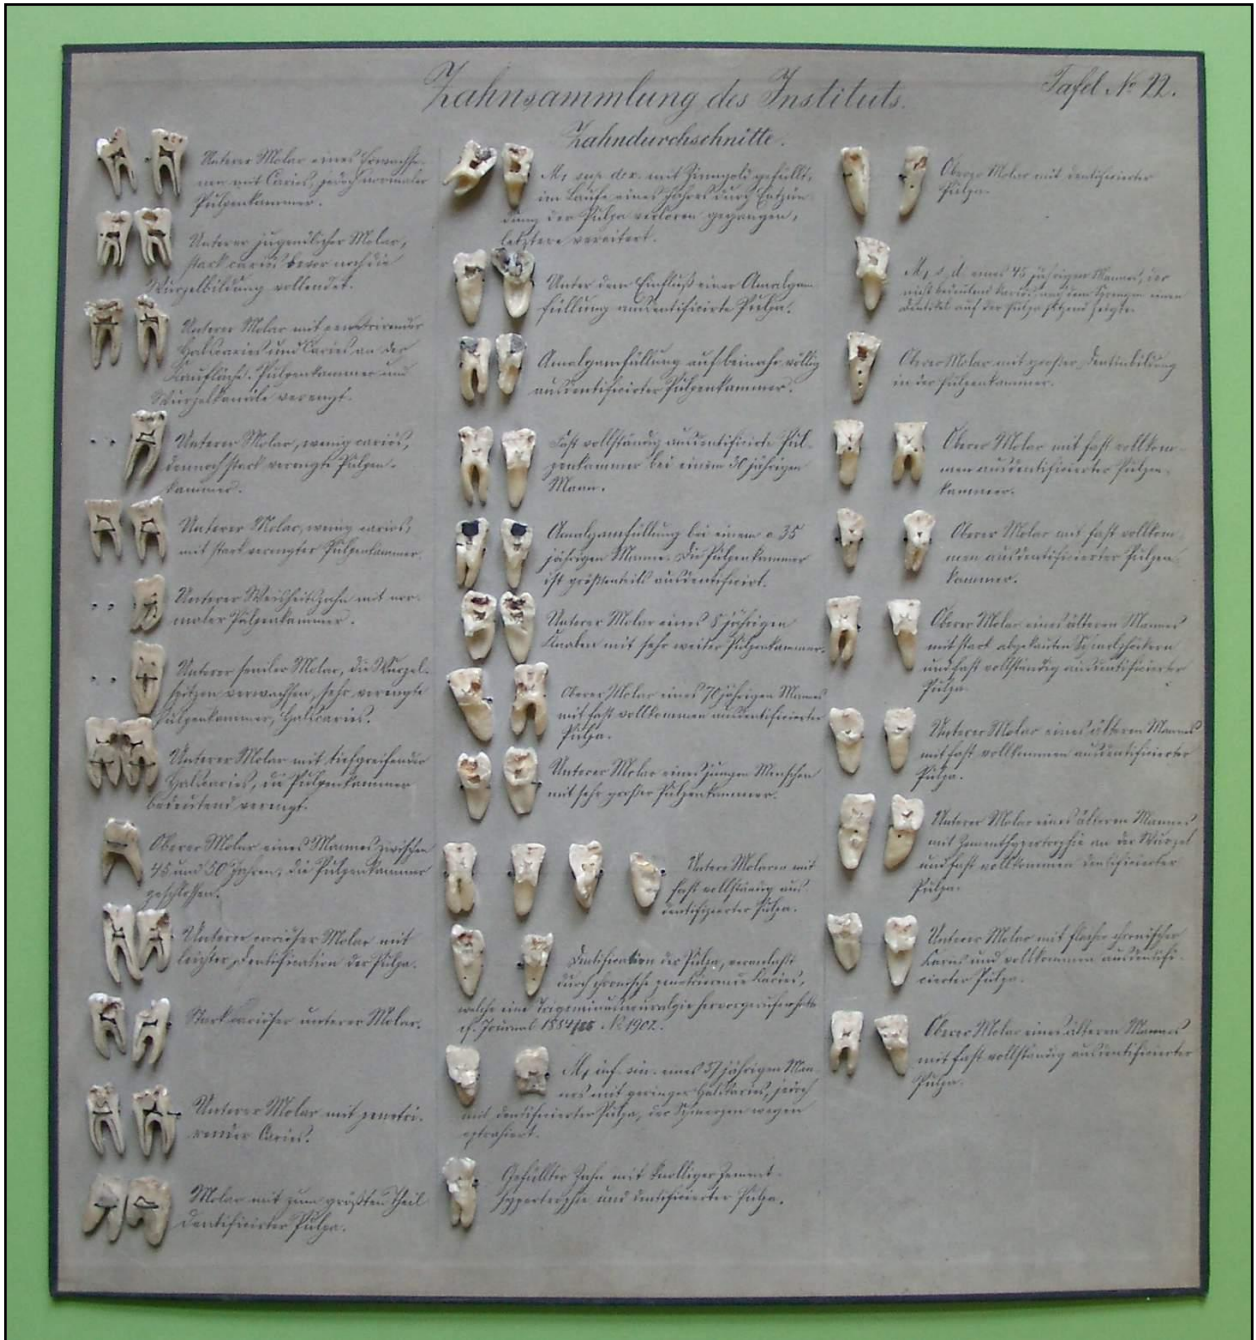 Zahnsammlung des Instituts.
Tafel No 22.
Zahndurchschnitte.
Unterer Molar eines Erwachse-
nen mit Caries, jedoch normaler
Pulpenkammer.
Unterer jugendlicher Molar,
stark cariös bevor noch die
Wurzelbildung vollendet.
Unterer Molar mit penetrirender
Halscaries und Caries an der
Kaufläche. Pulpenkammer und
Wurzelkanäle verengt.
Unterer Molar, wenig cariös,
dennoch stark verengte Pulpen-
kammer.
Unterer Molar, wenig cariös,
mit stark verengter Pulpenkammer.
Unterer Weisheitszahn mit nor-
maler Pulpenkammer.
Unterer seniler Molar, die Wurzel-
spitzen verwachsen, sehr verengte
Pulpenkammer, Halscaries.
Unterer Molar mit tiefgreifender
Halscaries, die Pulpenkammer
bedeutend verengt.
Oberer Molar eines Mannes zwischen
45 und 50 Jahren, die Pulpenkammer
geschlossen.
Unterer cariöser Molar mit
leichter Dentification der Pulpa.
Stark cariöser unterer Molar.
Unterer Molar mit penetri-
render Caries.
Molar mit zum größten Theil
dentificirter Pulpa.
M1 sup. dex. mit Zinngold gefüllt,
im Laufe eines Jahres durch Entzün-
dung der Pulpa verloren gegangen,
letztere vereitert.
Unter dem Einfluß einer Amalgam-
füllung ausdentificirte Pulpa.
Amalgamfüllung auf beinahe völlig
ausdentificirter Pulpenkammer.
Fast vollständig ausdentificirte Pul-
penkammer bei einem 30 jährigen
Mann.
Amalgamfüllung bei einem c. 35
jährigen Manne. Die Pulpenkammer
ist größtenteils ausdentificirt.
Unterer Molar eines 8 jährigen
Knaben mit sehr weiter Pulpenkammer.
Oberer Molar eines 70 jährigen Mannes
mit fast vollkommen ausdentificirter
Pulpa.
Unterer Molar eines jungen Menschen
mit sehr großer Pulpenkammer.
Untere Molaren mit
fast vollständig aus-
dentifizierter Pulpa.
Dentification der Pulpa, veranlaßt
durch chronische penetrierende Caries,
welche eine Trigeminusneuralgie hervorgerufen hatte
cf. Journal 1884/85 No 1902.
M1 inf. sin. eines 37 jährigen Man-
nes mit geringer Halscaries, jedoch
mit dentificirter Pulpa, der Schmerzen wegen
extrahiert.
Gefüllter Zahn mit knolliger Zement-
hypertrophie und dentificirter Pulpa.
Oberer Molar mit dentificirter
Pulpa.
M1 s. d. eines 45 jährigen Mannes, der
nicht bedeutend kariös, nach dem Sprengen einen
Dentikel auf der Pulpa sitzend zeigte.
Oberer Molar mit großer Dentinbildung
in der Pulpenkammer.
Oberer Molar mit fast vollkom-
men ausdentificirter Pulpen-
kammer.
Oberer Molar mit fast vollkom-
men ausdentificirter Pulpen-
kammer.
Oberer Molar eines älteren Mannes
mit stark abgekauten Schmelzhöckern
und fast vollständig ausdentificirter
Pulpa.
Unterer Molar eines älteren Mannes
mit fast vollkommen ausdentificirter
Pulpa.
Unterer Molar eines älteren Mannes
mit Zementhypertrophie an der Wurzel
und fast vollkommen dentificirter
Pulpa.
Unterer Molar mit flacher chronischer
Caries und vollkommen ausdentifi-
cierter Pulpa.
Oberer Molar eines älteren Mannes
mit fast vollständig ausdentificirter
Pulpa.